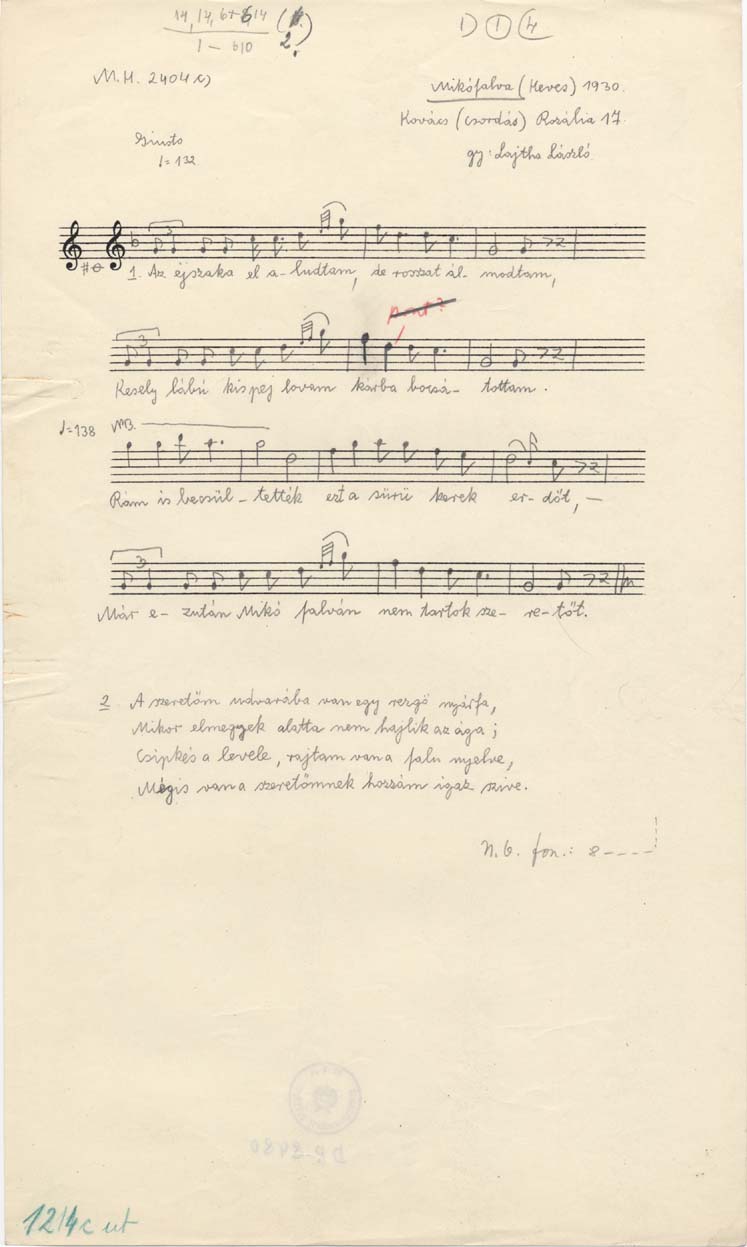 14, 14, 6+8, 14
1 – b10
2.
1) ① ④
M.H. 2404 c)
Mikófalva (Heves) 1930.
Kovács (csordás) Rozália 17.
gy: Lajtha László.
Giusto
♩= 132
3
1. Az éjszaka el a- ludtam, de rosszat ál- modtam,
3
Kesely lábú kis pej lovam kárba bocsá- tottam.
♩= 138 NB.
Rám is becsül- tették ezt a sürü kerek er- dőt, –
3
Már e- zután Mikó falván nem tartok sze- re- tőt.
2 A szeretőm udvarába van egy rezgő nyárfa,
Mikor elmegyek alatta nem hajlik az ága;
Csipkés a levele, rajtam van a falu nyelve,
Mégis van a szeretőmnek hozzám igaz szive.
N.b. fon.: 8----
12/4c ut